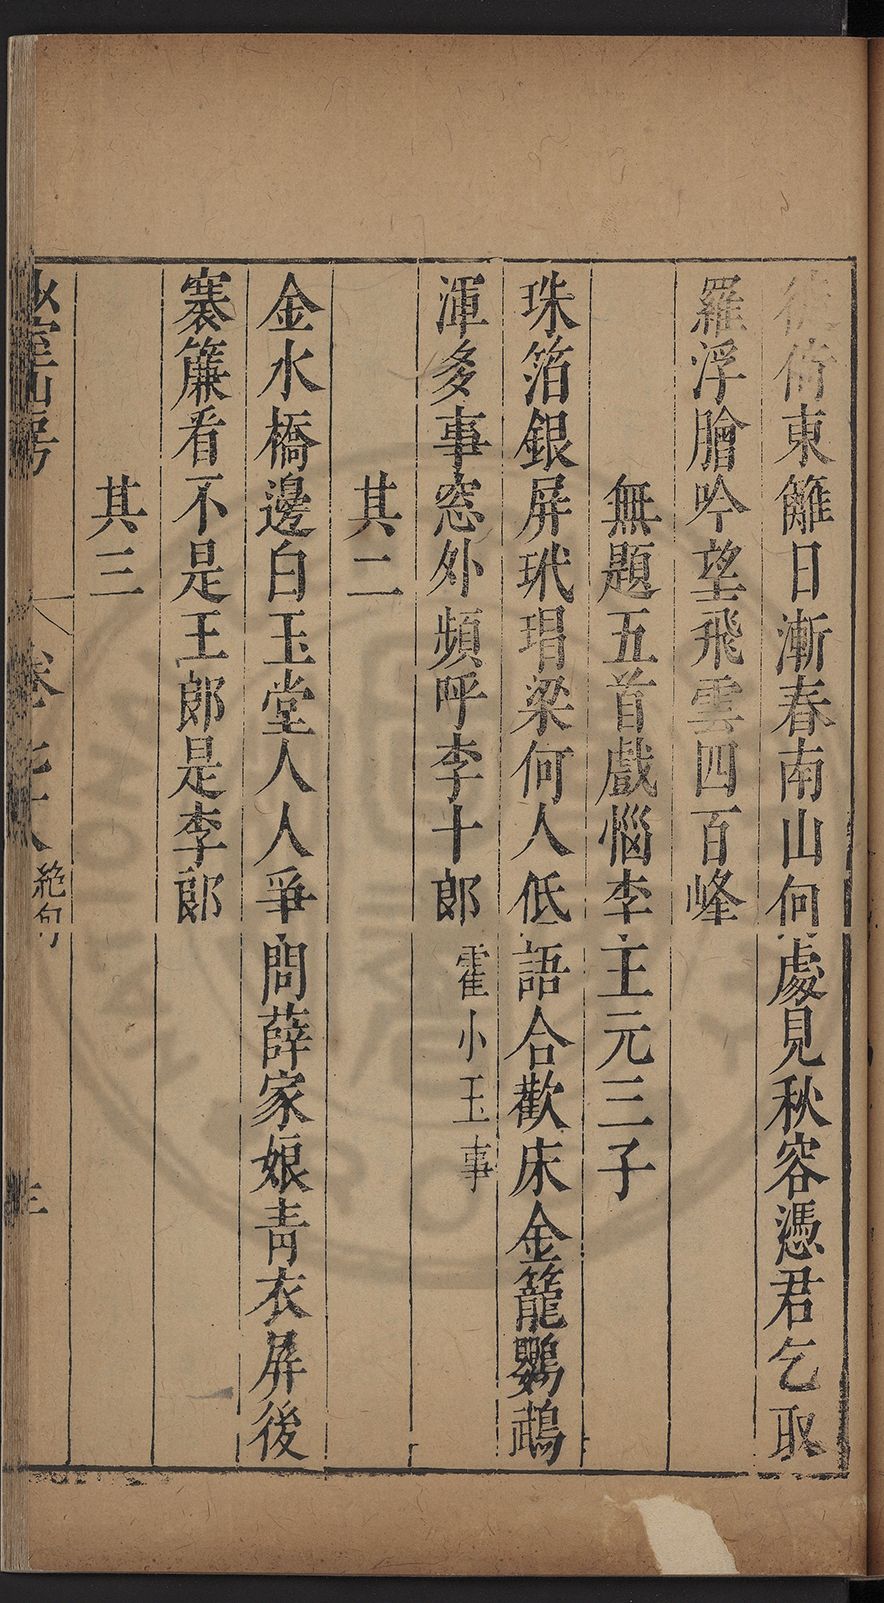 徙倚東籬日漸春南山何處見秋容憑君乞取
羅浮膾吟望飛雲四百峰
無題五首戲惱李主元三子
珠箔銀屏玳瑁梁何人低語合歡床金籠鸚鵡
渾多事窓外頻呼李十郎 霍小玉事
其二
金水橋邊白玉堂人人爭問薛家娘青衣屏後
褰簾看不是王郎是李郎
其三
少室山房 卷七十八 絶句 三